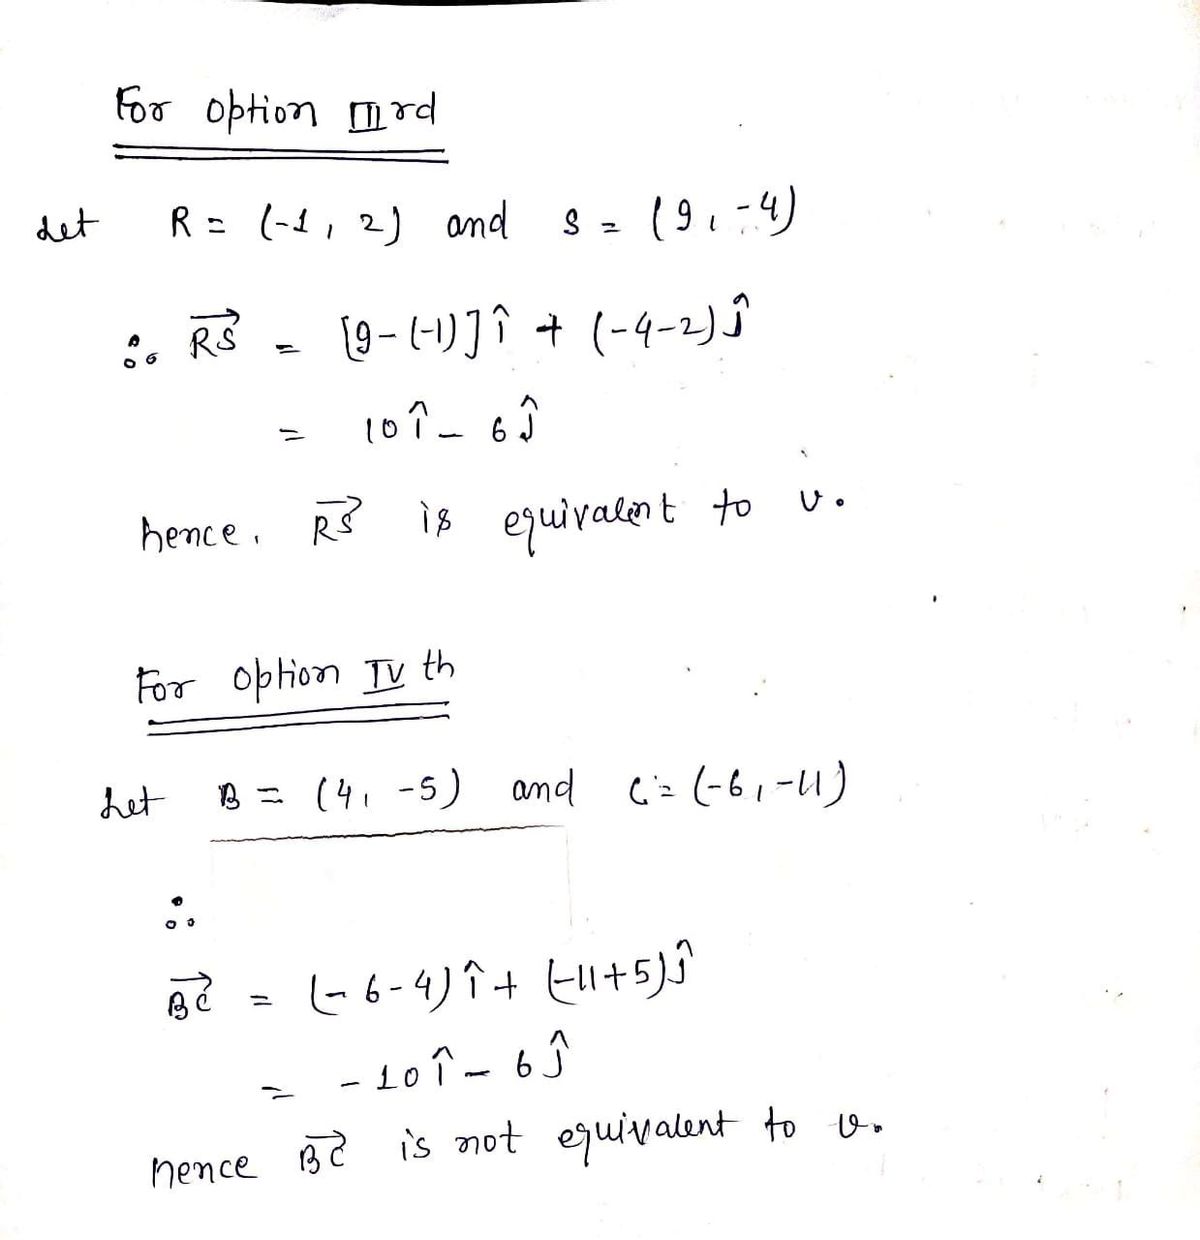 For option III rd
Let R = (-1, 2) and S = (9, -4)
∴ RS⃗ = [9-(-1)] î + (-4-2) ĵ
= 10 î - 6 ĵ
hence, RS⃗ is equivalent to v.
For option IV th
Let B = (4, -5) and C = (-6, -11)
∴
BC⃗ = (-6-4) î + (-11+5) ĵ
= -10 î - 6 ĵ
hence BC⃗ is not equivalent to v.